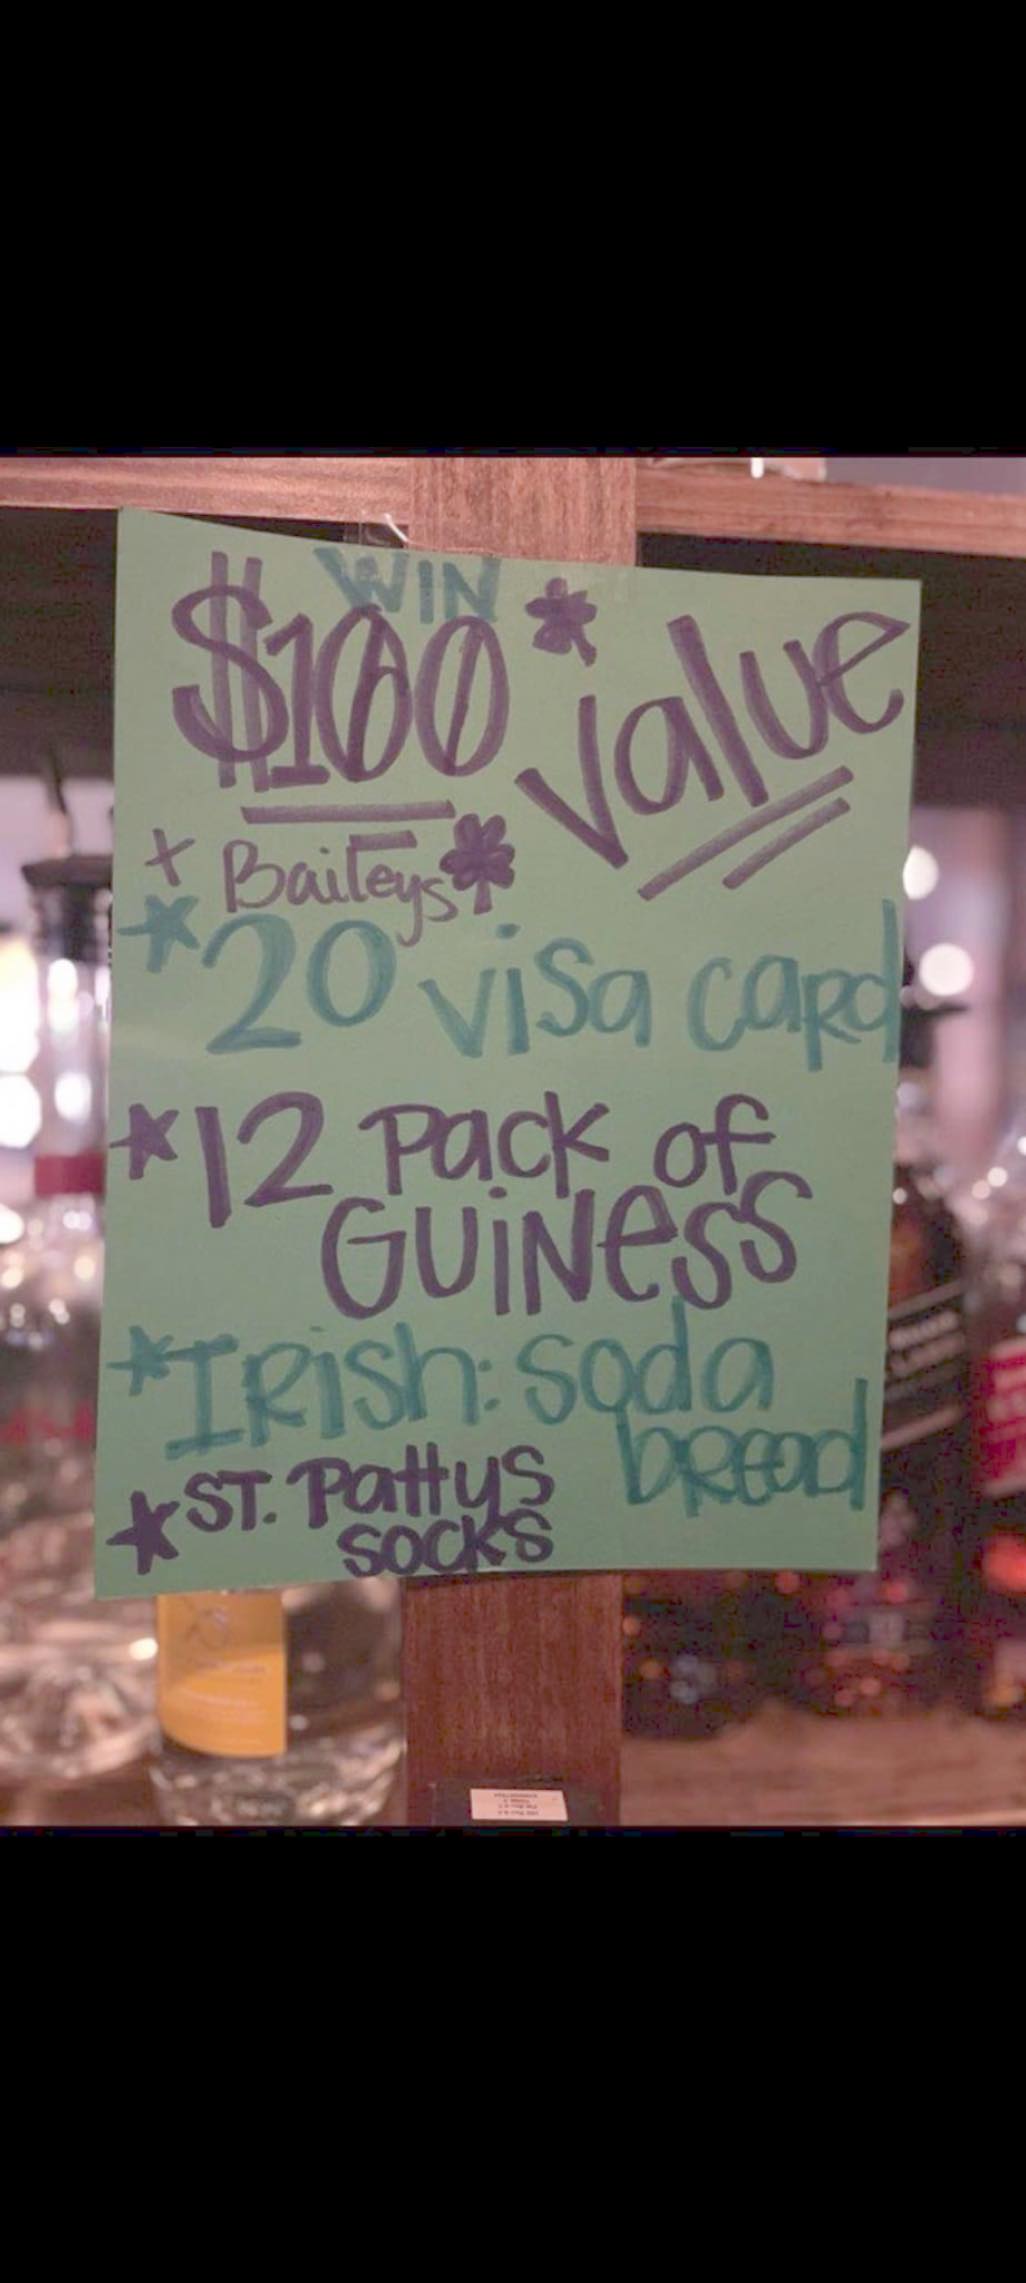 WIN
$100 value
+ Baileys
*20 visa card
*12 Pack of
GUINESS
*IRish: soda
bread
*ST. Pattys
socks